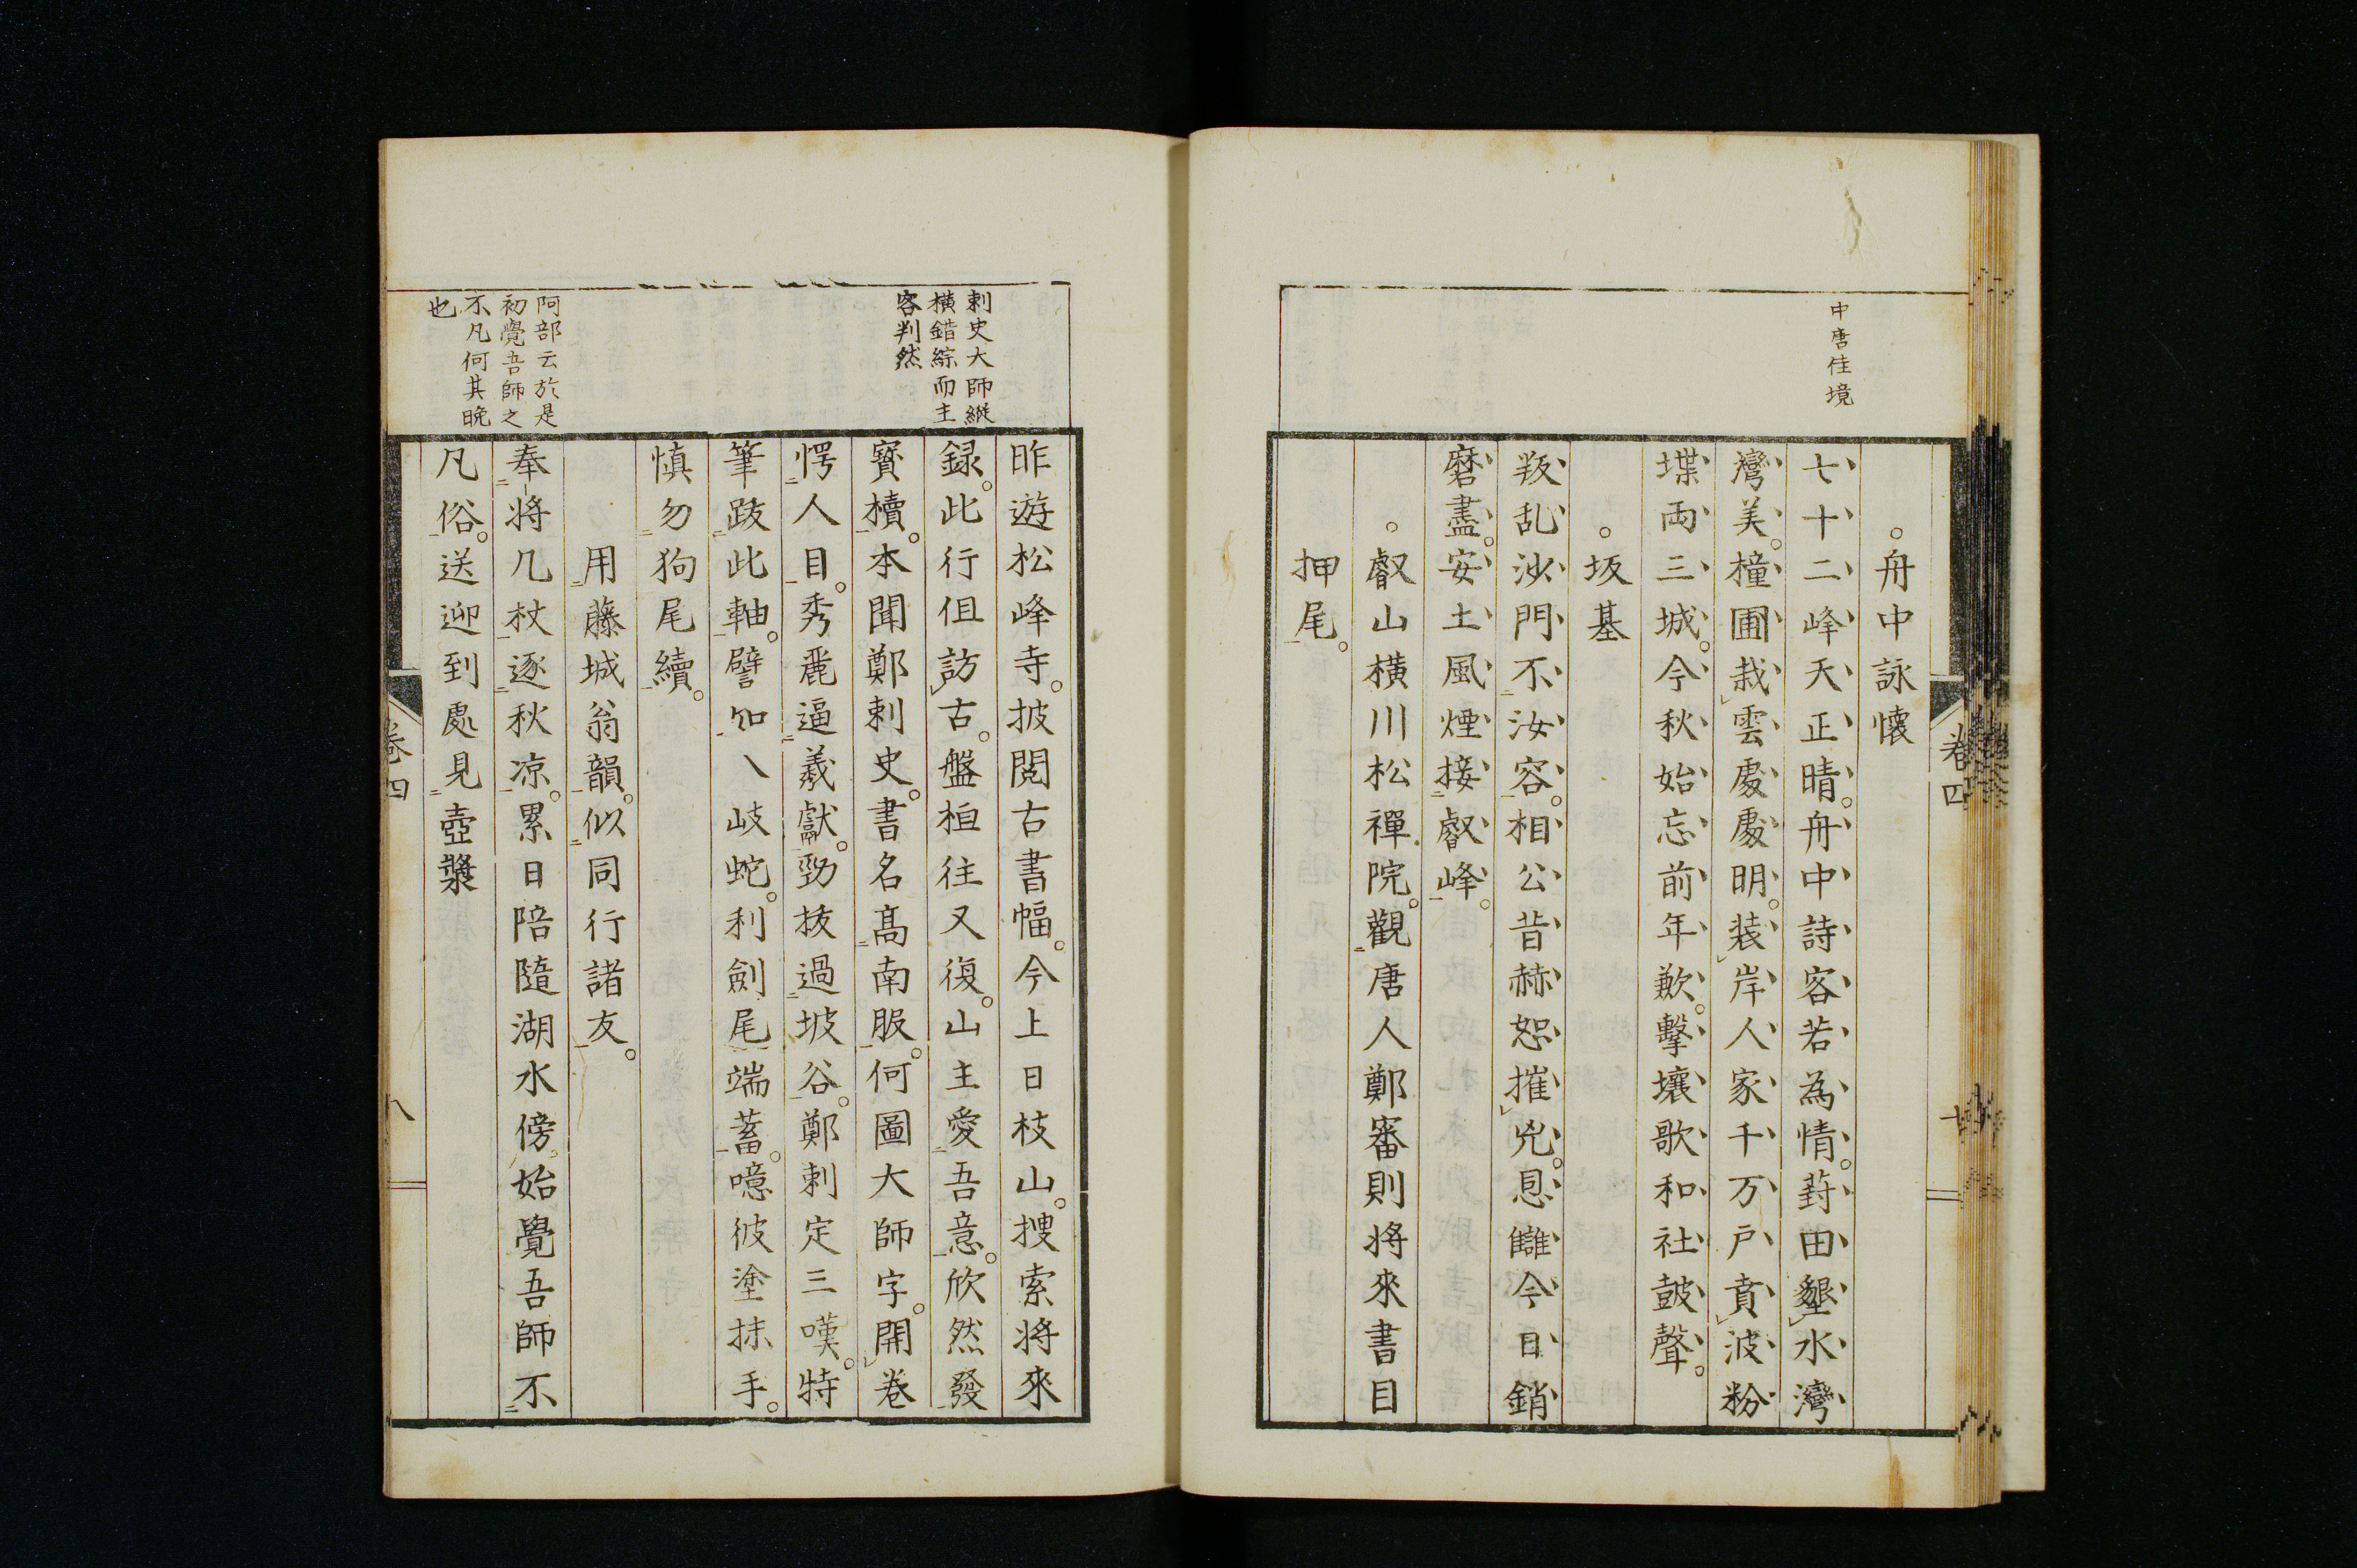 中唐佳境
舟中詠懷
七十二峰天正晴。舟中詩客若為情。葑田墾水灣
灣美。橦圃栽雲處處明。装岸人家千万戸賁波粉
堞両三城。今秋始忘前年歉。擊壌歌和社鼓聲。
坂基
叛乱沙門不汝容。相公昔赫怒摧兇。息讎今日銷
磨盡。安土風煙接叡峰。
叡山横川松禪院。觀唐人鄭審則將來書目
押尾。
卷四
刺史大師縱
横錯綜而主
客判然
阿部云於是
初覺吾師之
不凡何其晩
也
昨遊松峰寺。披閲古書幅。今上日枝山。捜索將來
録。此行伹訪古。盤桓往又復。山主愛吾意。欣然發
寳櫝。本聞鄭刺史。書名髙南服。何圖大師字。開卷
愕人目。秀麗逼羲獻。勁抜過坡谷。鄭刺定三嘆。特
筆跋此軸。譬如八岐蛇。利劍尾端蓄。噫彼塗抹手。
慎勿狗尾續。
用藤城翁韻。似同行諸友。
奉將几杖逐秋凉。累日陪隨湖水傍。始覺吾師不
凡俗。送迎到處見壺漿
卷四
八